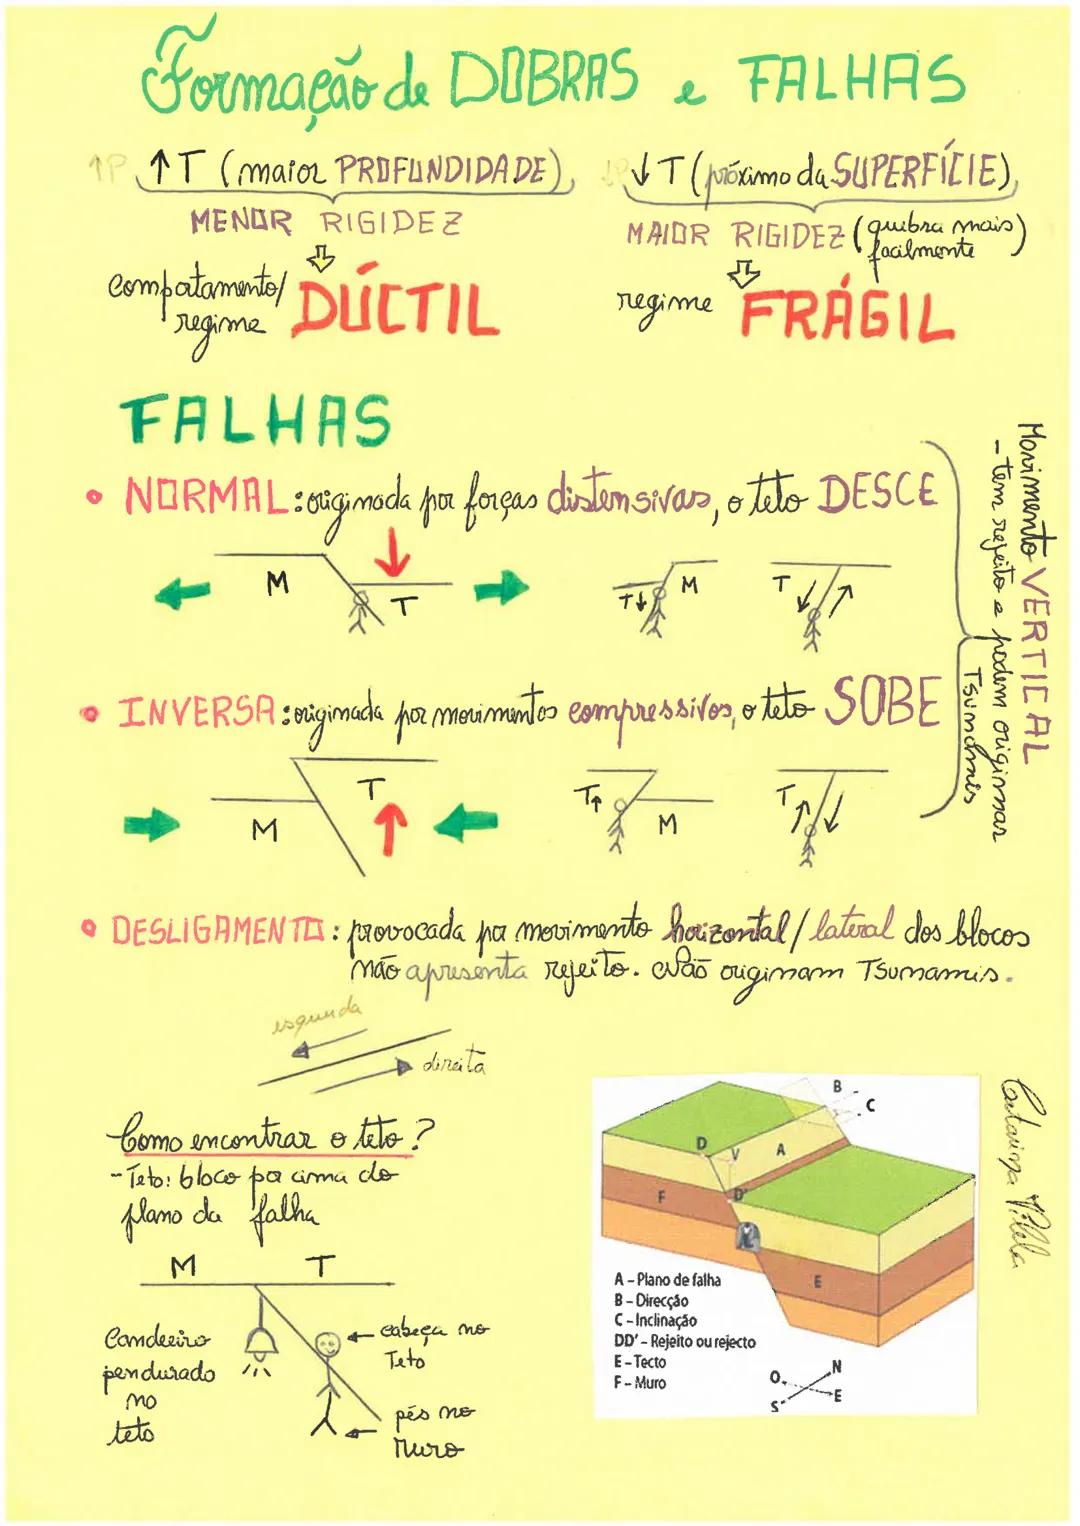 Formação de DOBRAS e FALHAS
↑P ↑T (maior PROFUNDIDADE)
MENOR RIGIDEZ
comportamento/
regime DÚCTIL
↓P ↓T (próximo da SUPERFÍCIE)
MAIOR RIGIDEZ (quebra mais
facilmente)
regime FRÁGIL
FALHAS
• NORMAL: originada por forças distensivas, o teto DESCE
M T
T M
T
• INVERSA: originada por movimentos compressivos, o teto SOBE
T
M
T M
T
Movimento VERTICAL
- tem rejeito e podem originar
Tsunamis
• DESLIGAMENTO: provocada por movimento horizontal/lateral dos blocos
não apresenta rejeito. Não originam Tsunamis.
esquerda
direita
Como encontrar o teto?
- Teto: bloco por cima do
plano da falha
M T
Candeeiro
pendurado
no
teto
cabeça no
Teto
pés no
Muro
B
C
D V A
F D'
E
A - Plano de falha
B - Direcção
C - Inclinação
DD' - Rejeito ou rejecto
E - Tecto
F - Muro
N
O
E
S
Catarina Vilela